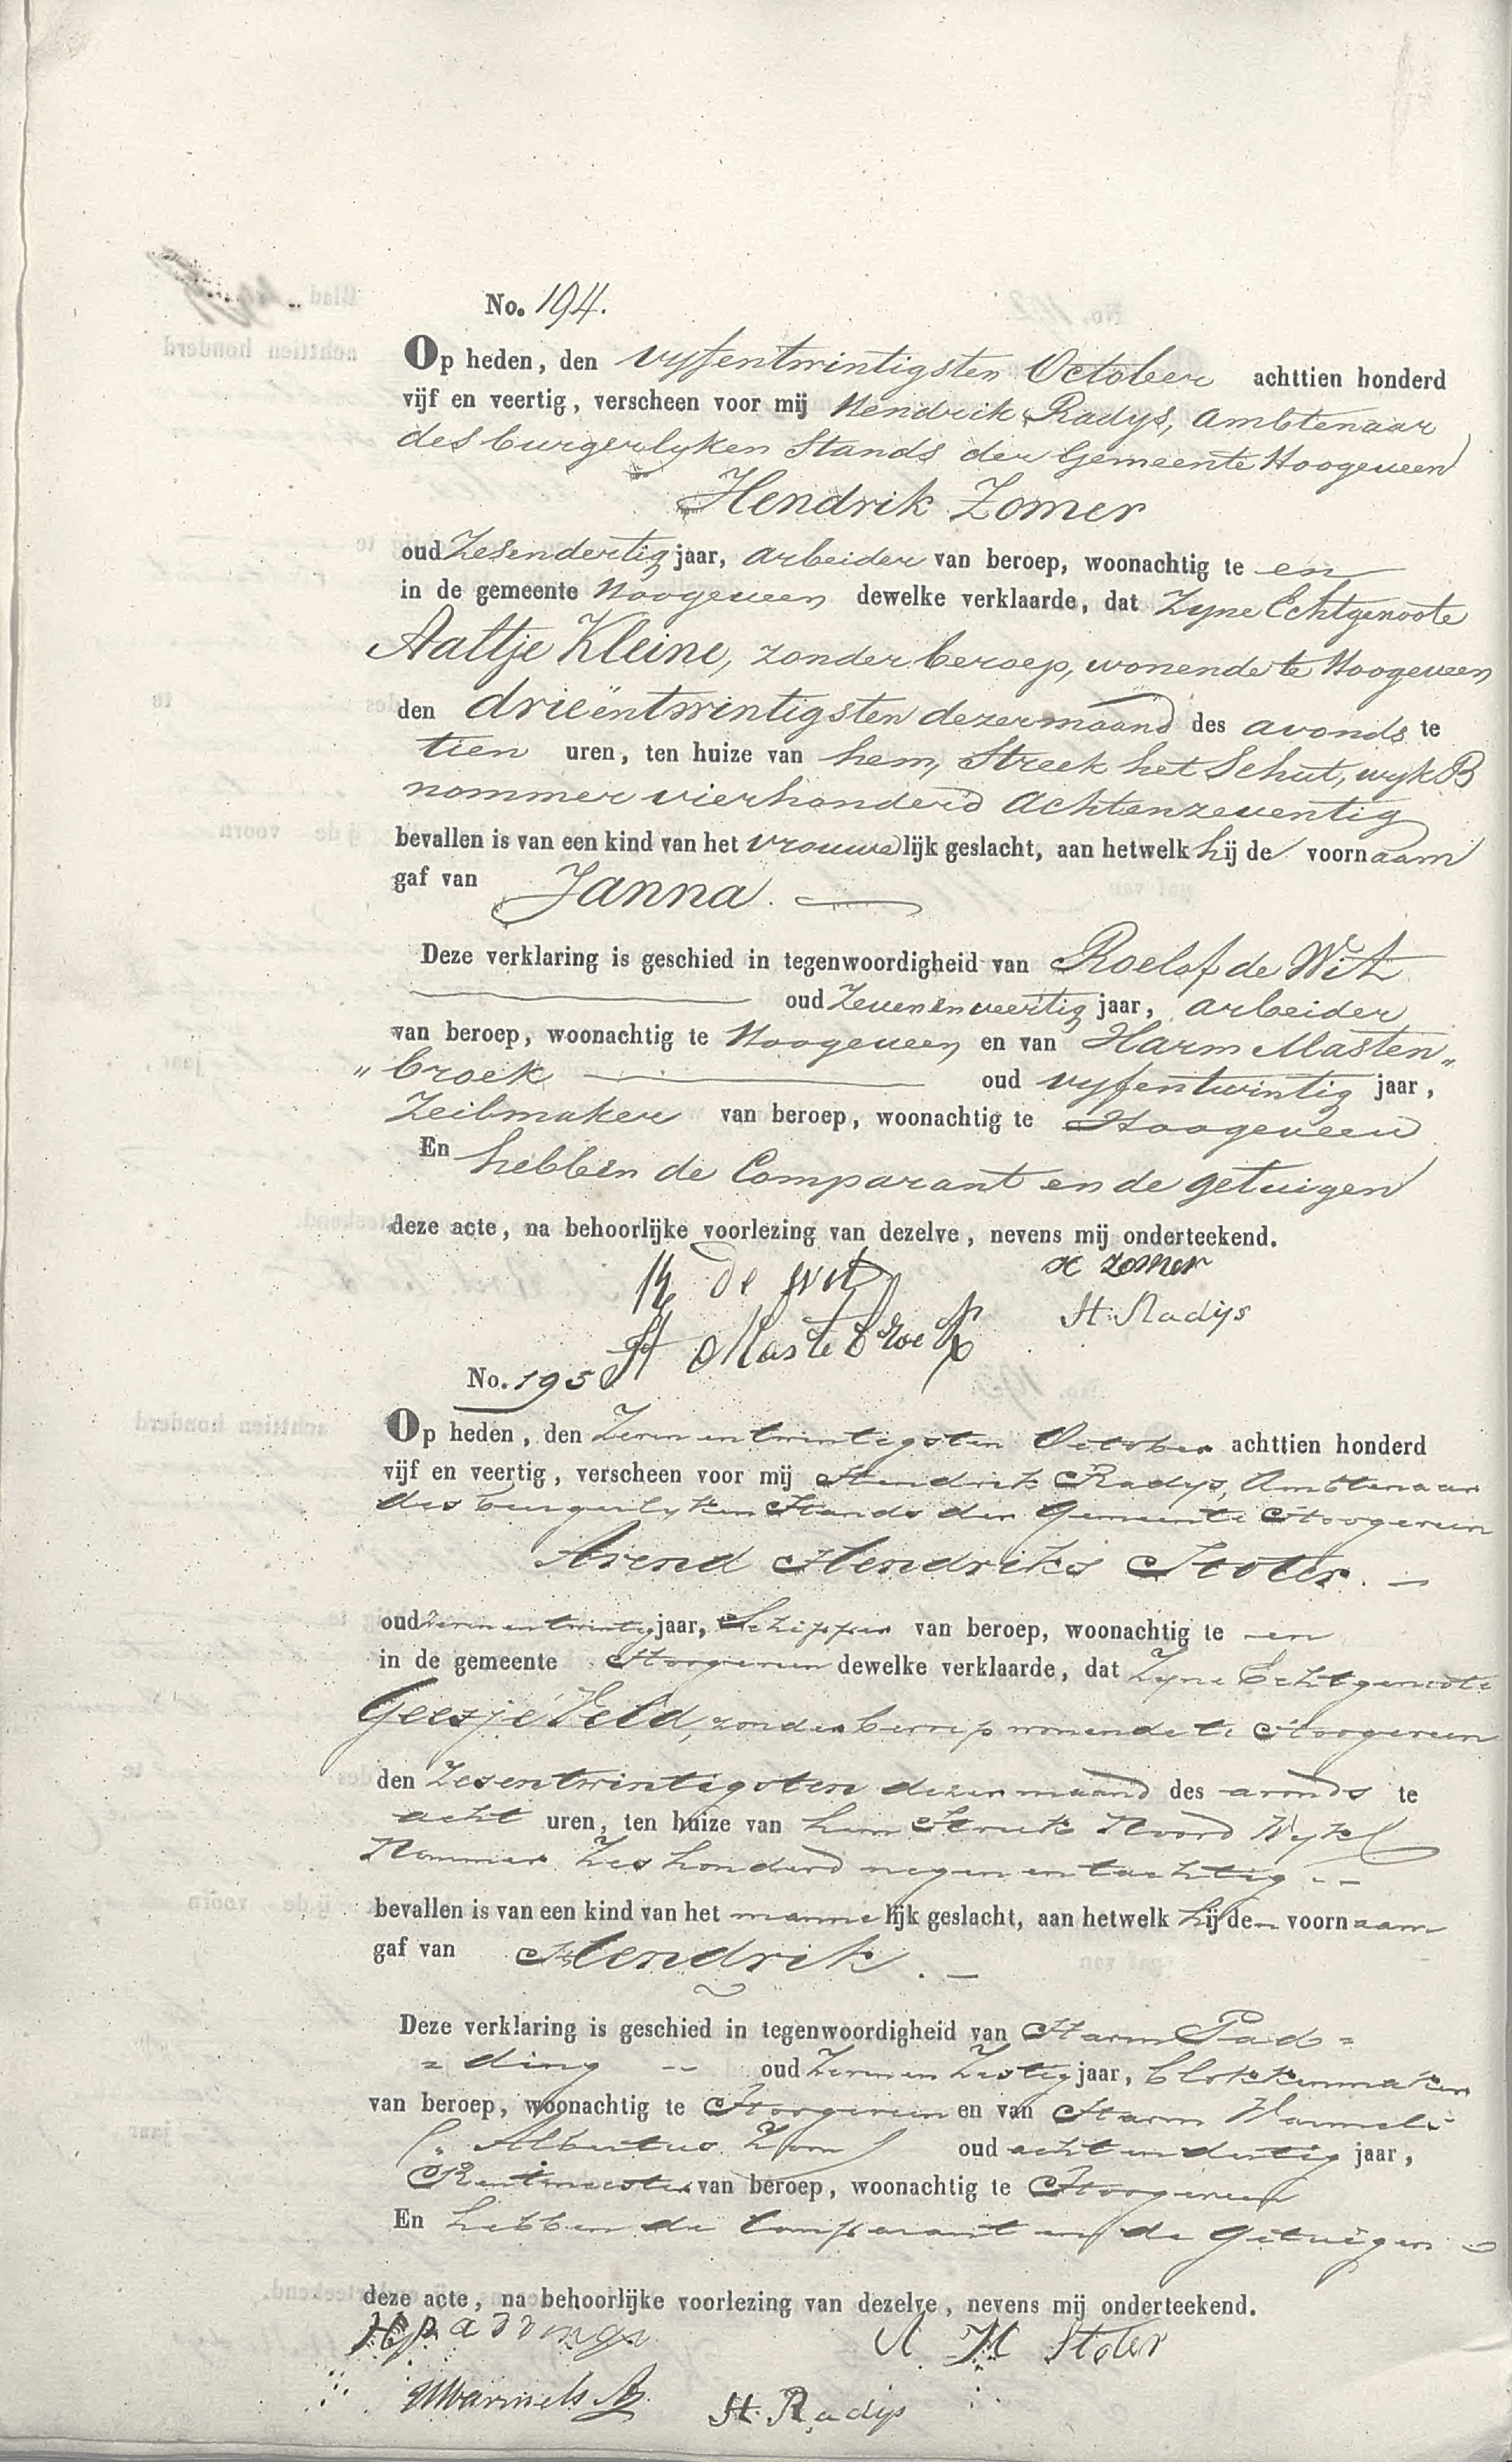 No. 194.
Op heden, den vyfentwintigsten October achttien honderd
vijf en veertig, verscheen voor mij Hendrik Radys, Ambtenaar
des burgerlyken Stands der Gemeente Hoogeveen
Hendrik Zomer
oud Zesendertig jaar, arbeider van beroep, woonachtig te en
in de gemeente Hoogeveen dewelke verklaarde, dat Zyne Echtgenoote
Aaltje Kleine, zonder beroep, wonende te Hoogeveen
den drieëntwintigsten dezer maand des avonds te
tien uren, ten huize van hem, Streek het Schut, wyk B
nommer vierhonderd achtenzeventig
bevallen is van een kind van het vrouwelijk geslacht, aan hetwelk hij de voornaam
gaf van Janna.
Deze verklaring is geschied in tegenwoordigheid van Roelof de Wit
oud Zevenenveertig jaar, arbeider
van beroep, woonachtig te Hoogeveen en van Harm Masten„
„broek oud vyfentwintig jaar,
Zeilmaker van beroep, woonachtig te Hoogeveen
En hebben de Comparant en de getuigen
deze acte, na behoorlijke voorlezing van dezelve, nevens mij onderteekend.
R de wit H zomer
H Mastebroek H. Radijs
No. 195
Op heden, den Zevenentwintigsten October achttien honderd
vijf en veertig, verscheen voor mij Hendrik Radys, Ambtenaar
des burgerlyken Stands der Gemeente Hoogeveen
Arend Hendriks Stoter. —
oud Zevenentwintig jaar, Schipper van beroep, woonachtig te en
in de gemeente Hoogeveen dewelke verklaarde, dat Zyne Echtgenoote
Geesje Veld, zonder beroep wonende te Hoogeveen
den Zesentwintigsten dezer maand des avonds te
acht uren, ten huize van hem Streek Noord Wyk
Nommer Zeshonderd negenentachtig --
bevallen is van een kind van het mannelijk geslacht, aan hetwelk hij den voornaam
gaf van Hendrik. —
Deze verklaring is geschied in tegenwoordigheid van Harm Pad=
=ding -- oud Zevenen Zestig jaar, Klokkenmaker
van beroep, woonachtig te Hoogeveen en van Harm Warmels
(Albertus Zoon) oud achtendertig jaar,
Rentmeester van beroep, woonachtig te Hoogeveen
En hebben de Comparant en de Getuigen
deze acte, na behoorlijke voorlezing van dezelve, nevens mij onderteekend.
H paddinge A H Stoter
HWarmels Az. H. Radijs